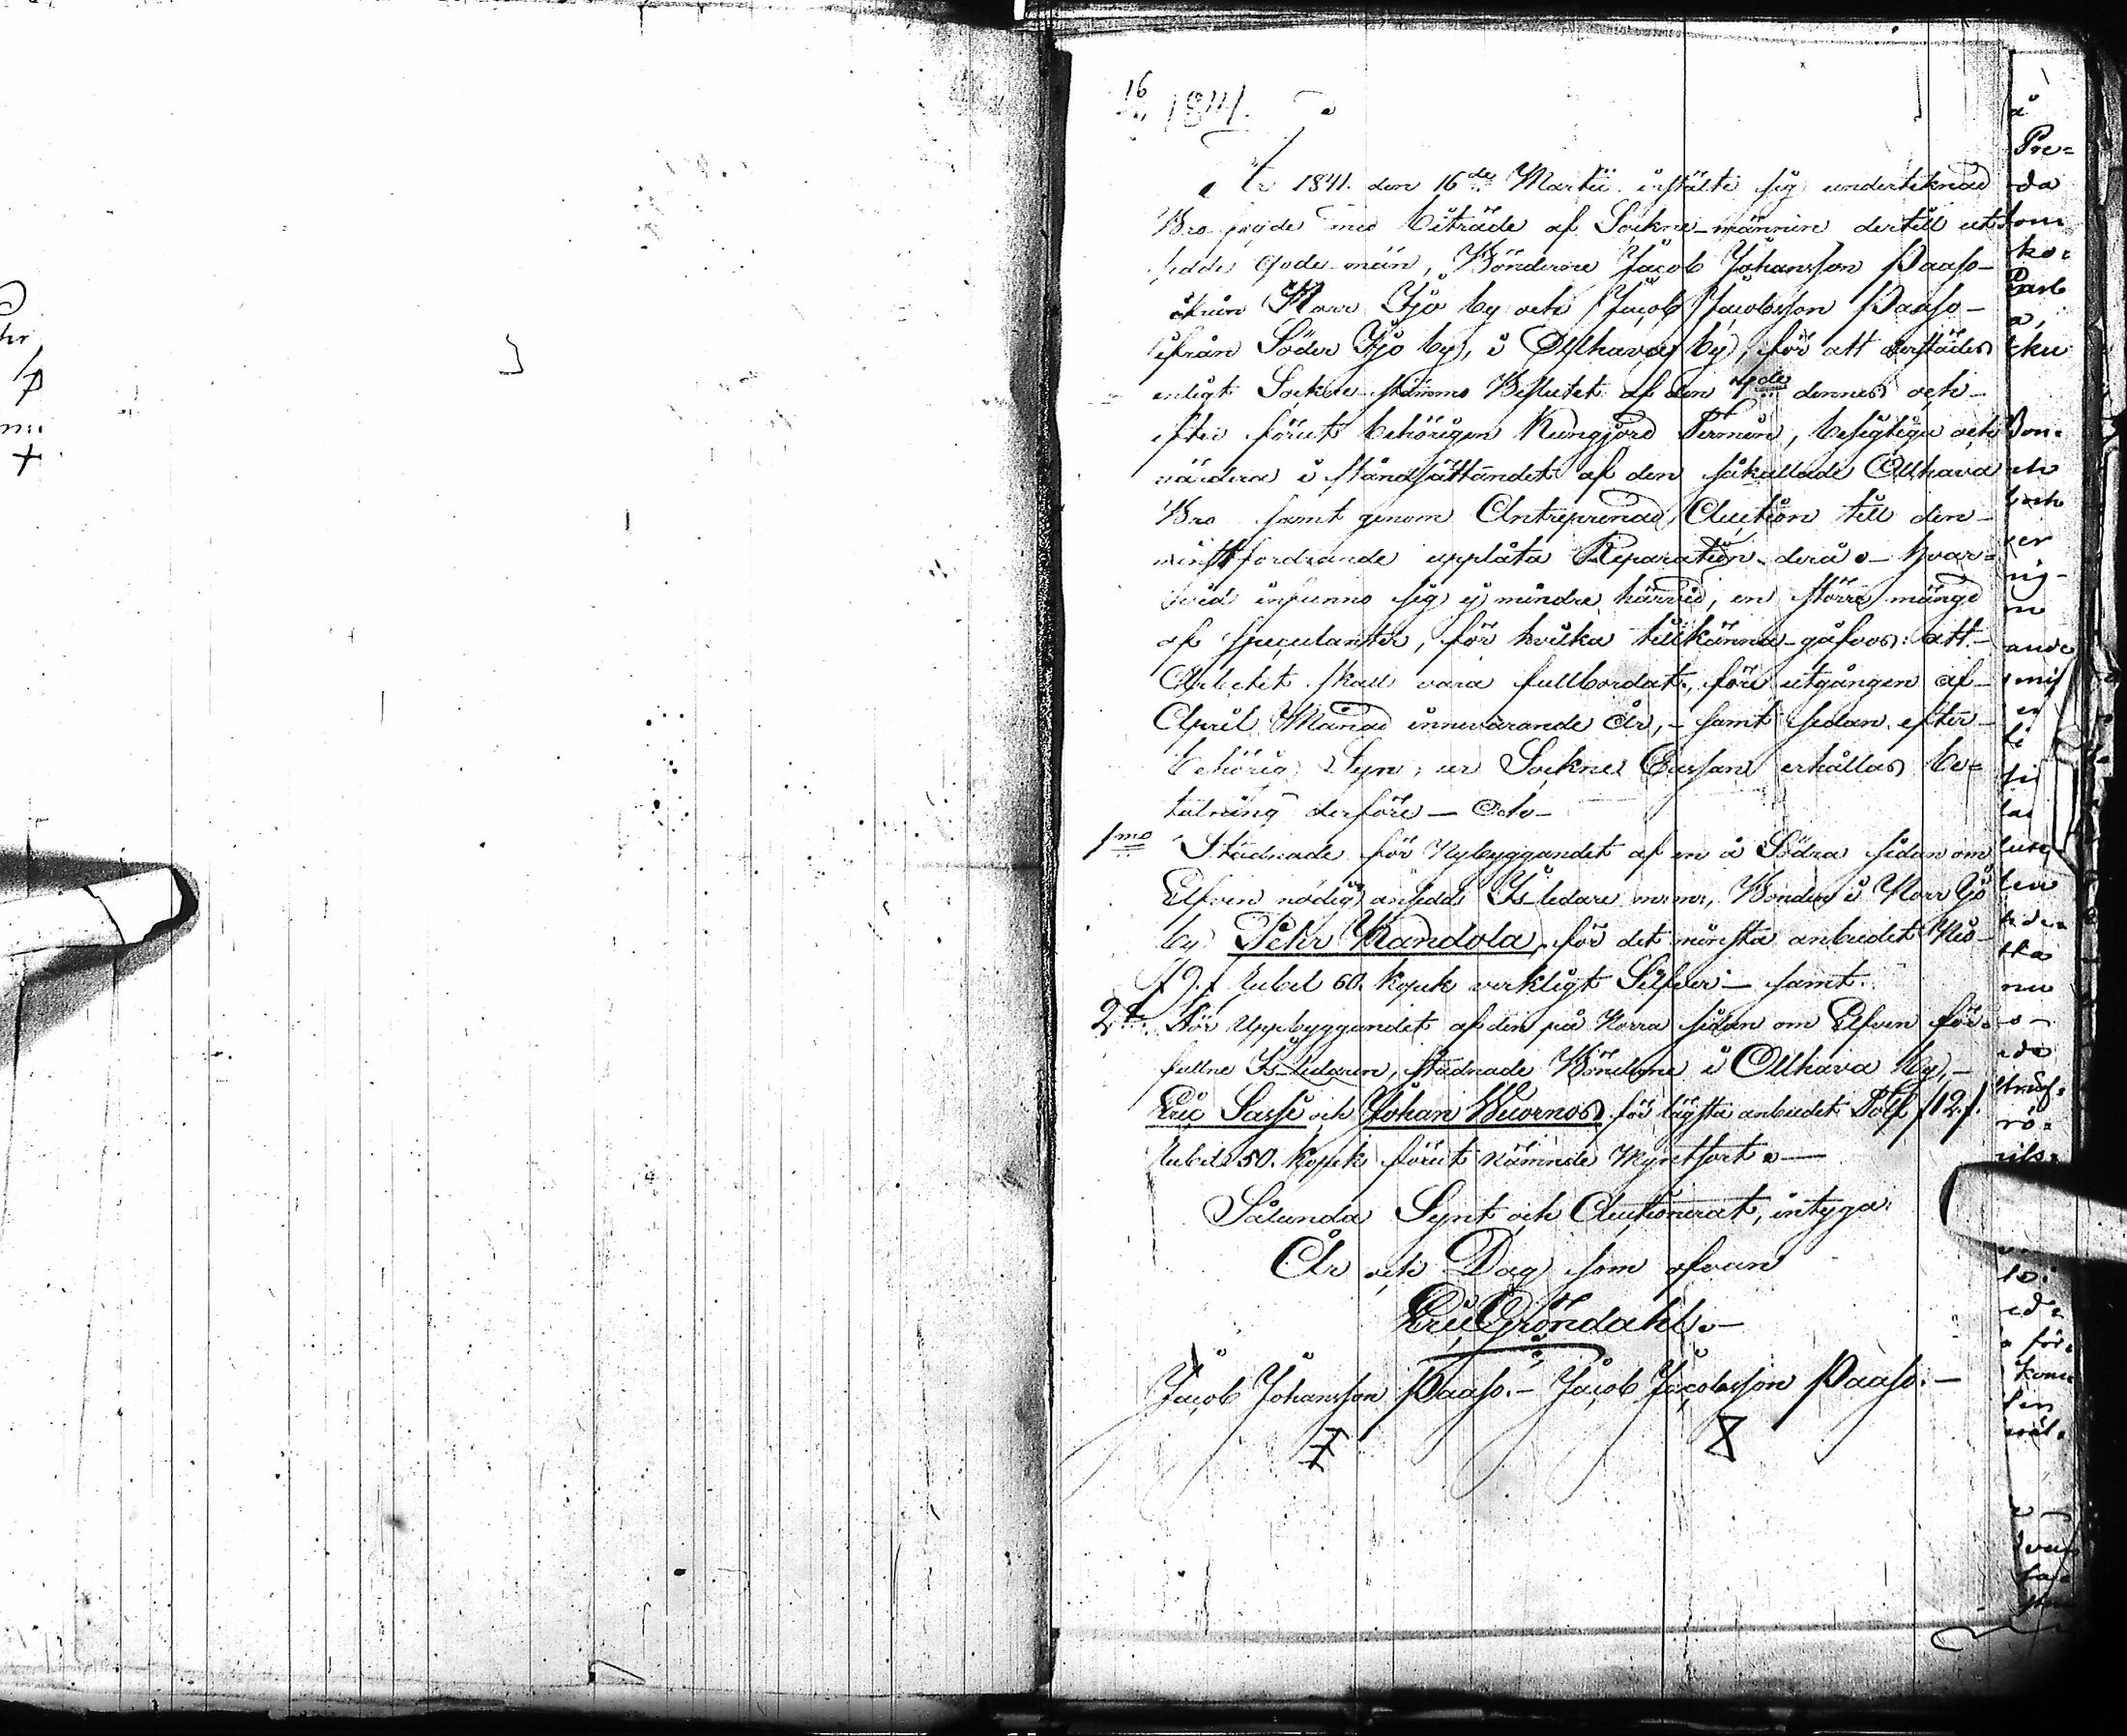 16
1841.
År 1841. den 16de Martii instälte sig undertecknad
Bro fogde med biträde af Sockne-männen dertill ut
sedde Gode-män, Bönderne Jacob Johansson Paaso
Norr Ijo by och Jacob Jacobsson Paaso-
ifrån Söder Ijo by, i Olhava by, för att derstädes
enligt Sockne-stämmo Beslutet af den 7de dennes och-
efter förut behörigen Kungjord Termin, besigtiga och
värdera i ståndsättandet af den såkallade Olhava
Bro samt genom Entreprenad Auction till den-
minstfordrande upplåta Reparation derå - hvar=
vid infunno sig ej mindre härvid, en större mängd
af speculanter, för hvilka tillkänna-gåfvos: att-
Arbetet skall vara fullbordat, före utgången af-
April Månad innevarande År, - samt sedan efter-
behörig Syn, ur Sockne Cassan erhållas be=
talning derföre - Och-
1mo Stadnade för Nybyggandet af en å Södra sidan om
Elfven nödig ansedd Is-ledare m:m:, Bonden i Norr Ijo
by Petr Kandola, för det minsta anbudet Nio
/9./ Rubel 60. kopek verkligt Silfver - samt
2do För Uppbyggandet af den på Norra sidan om Elfven för-
fallne Is-ledaren, stadnade Bönderne i Olhava by,-
Eric Sassi och Johan Wuornos för lägsta anbudet Tolf /12./.
Rubel 50. kopek förut nämnde Myntsort.-
Sålunda Synt och Auctionerat, intyga
År och Dag som ofvan
Eric Gröndahl.-
Jacob Johansson Paaso.- Jacob Jacobsson Paaso.-